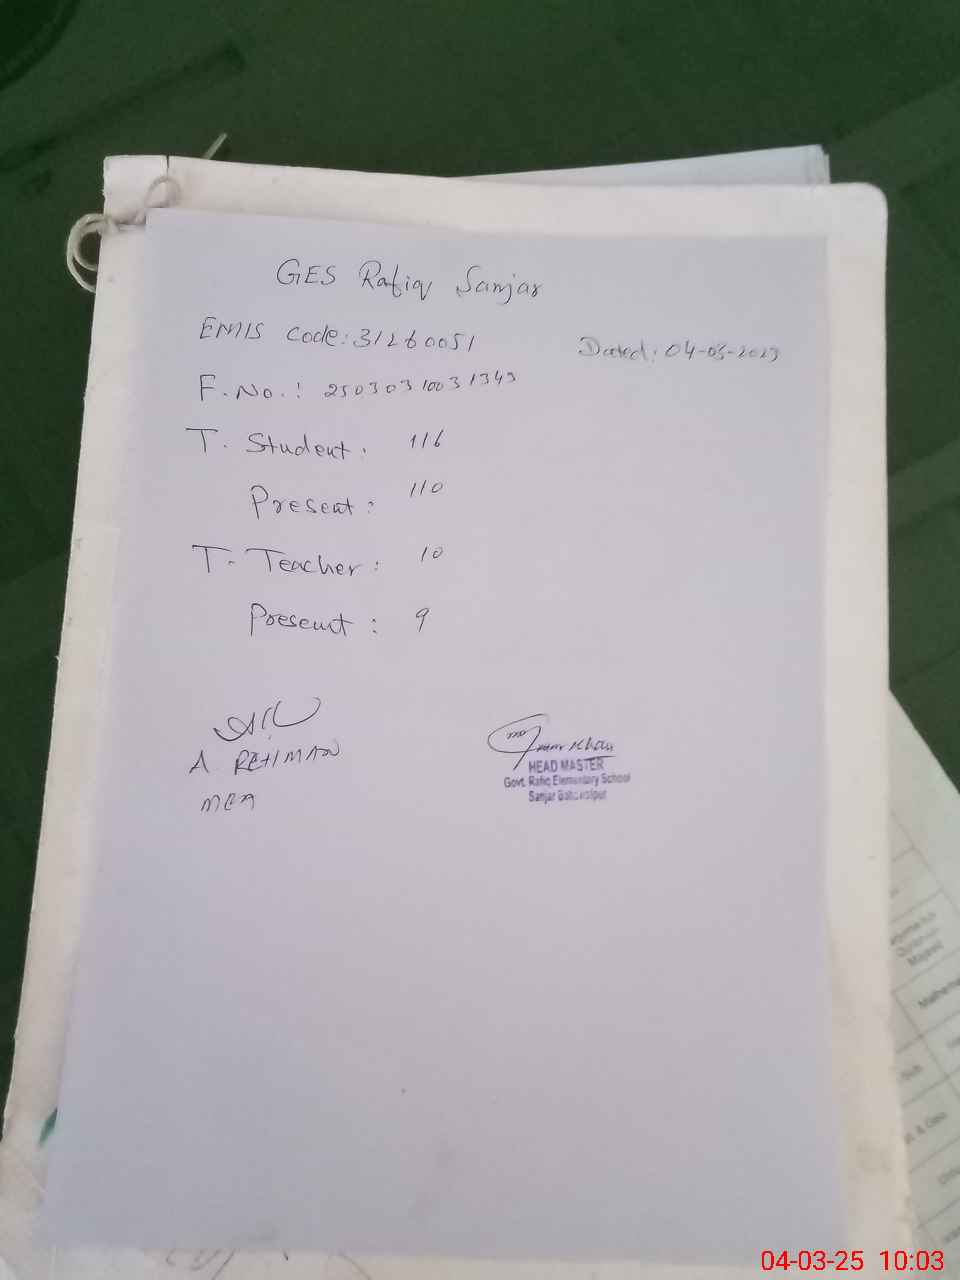 GES Rafiq Sanjar
EMIS Code: 31260051
Dated: 04-03-2025
F. No.: 2503031003 1343
T. Student: 116
Present: 110
T. Teacher: 10
Present: 9
A. REHMAN
MEA
HEAD MASTER
Govt. Rafiq Elementary School
Sanjar Bahawalpur
Mathema
& Geo
04-03-25 10:03